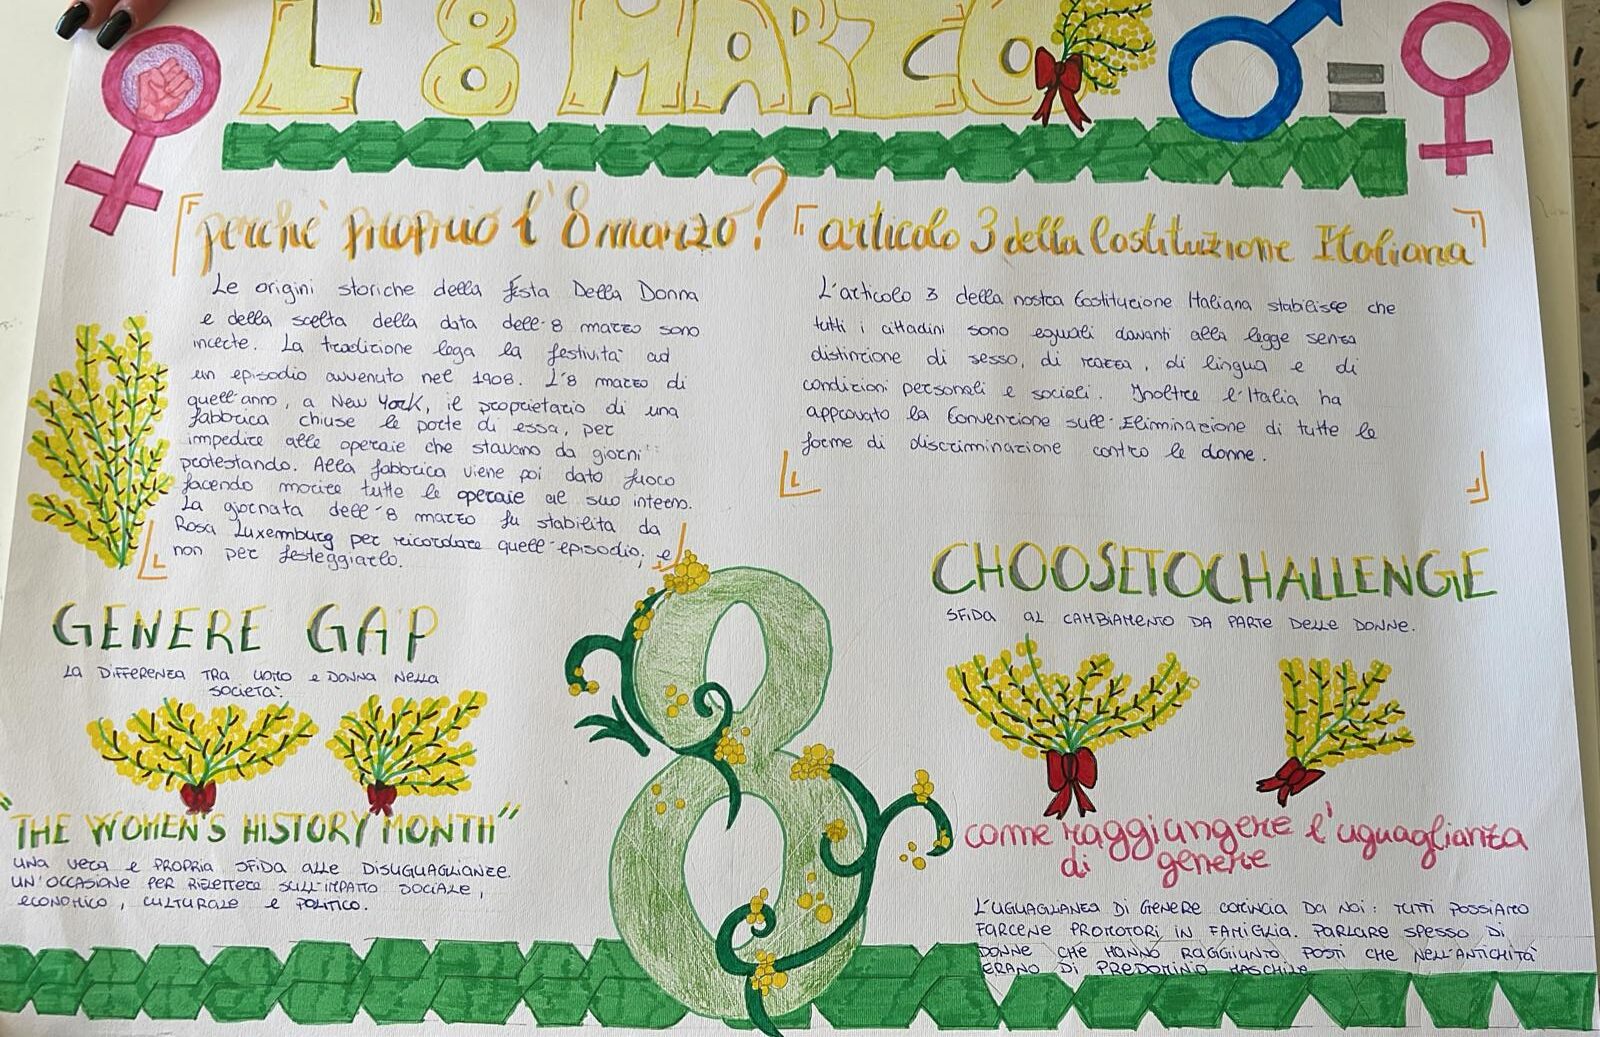 L'8 MARZO
perchè proprio l'8 marzo?
Le origini storiche della festa Della Donna
e della scelta della data dell'8 marzo sono
incerte. La tradizione lega la festività ad
un episodio avvenuto nel 1908. L'8 marzo di
quell'anno, a New York, il proprietario di una
fabbrica chiuse le porte di essa, per
impedire alle operaie che stavano da giorni
protestando. Alla fabbrica viene poi dato fuoco
facendo morire tutte le operaie al suo interno.
La giornata dell'8 marzo fu stabilita da
Rosa Luxemburg per ricordare quell'episodio, e
non per festeggiarlo.
articolo 3 della Costituzione Italiana
L'articolo 3 della nostra Costituzione Italiana stabilisce che
tutti i cittadini sono eguali davanti alla legge senza
distinzione di sesso, di razza, di lingua e di
condizioni personali e sociali. Inoltre l'Italia ha
approvato la Convenzione sull'Eliminazione di tutte le
forme di discriminazione contro le donne.
GENERE GAP
LA DIFFERENZA TRA UOMO E DONNA NELLA
SOCIETA'.
"THE WOMEN'S HISTORY MONTH"
UNA VERA E PROPRIA SFIDA ALLE DISUGUAGLIANZE.
UN'OCCASIONE PER RIFLETTERE SULL'IMPATTO SOCIALE,
ECONOMICO, CULTURALE E POLITICO.
CHOOSETOCHALLENGE
SFIDA AL CAMBIAMENTO DA PARTE DELLE DONNE.
come raggiungere l'uguaglianza
di genere
L'UGUAGLIANZA DI GENERE COMINCIA DA NOI: TUTTI POSSIAMO
FARCENE PROMOTORI IN FAMIGLIA. PARLARE SPESSO DI
DONNE CHE HANNO RAGGIUNTO POSTI CHE NELL'ANTICHITÀ
ERANO DI PREDOMINIO MASCHILE
8